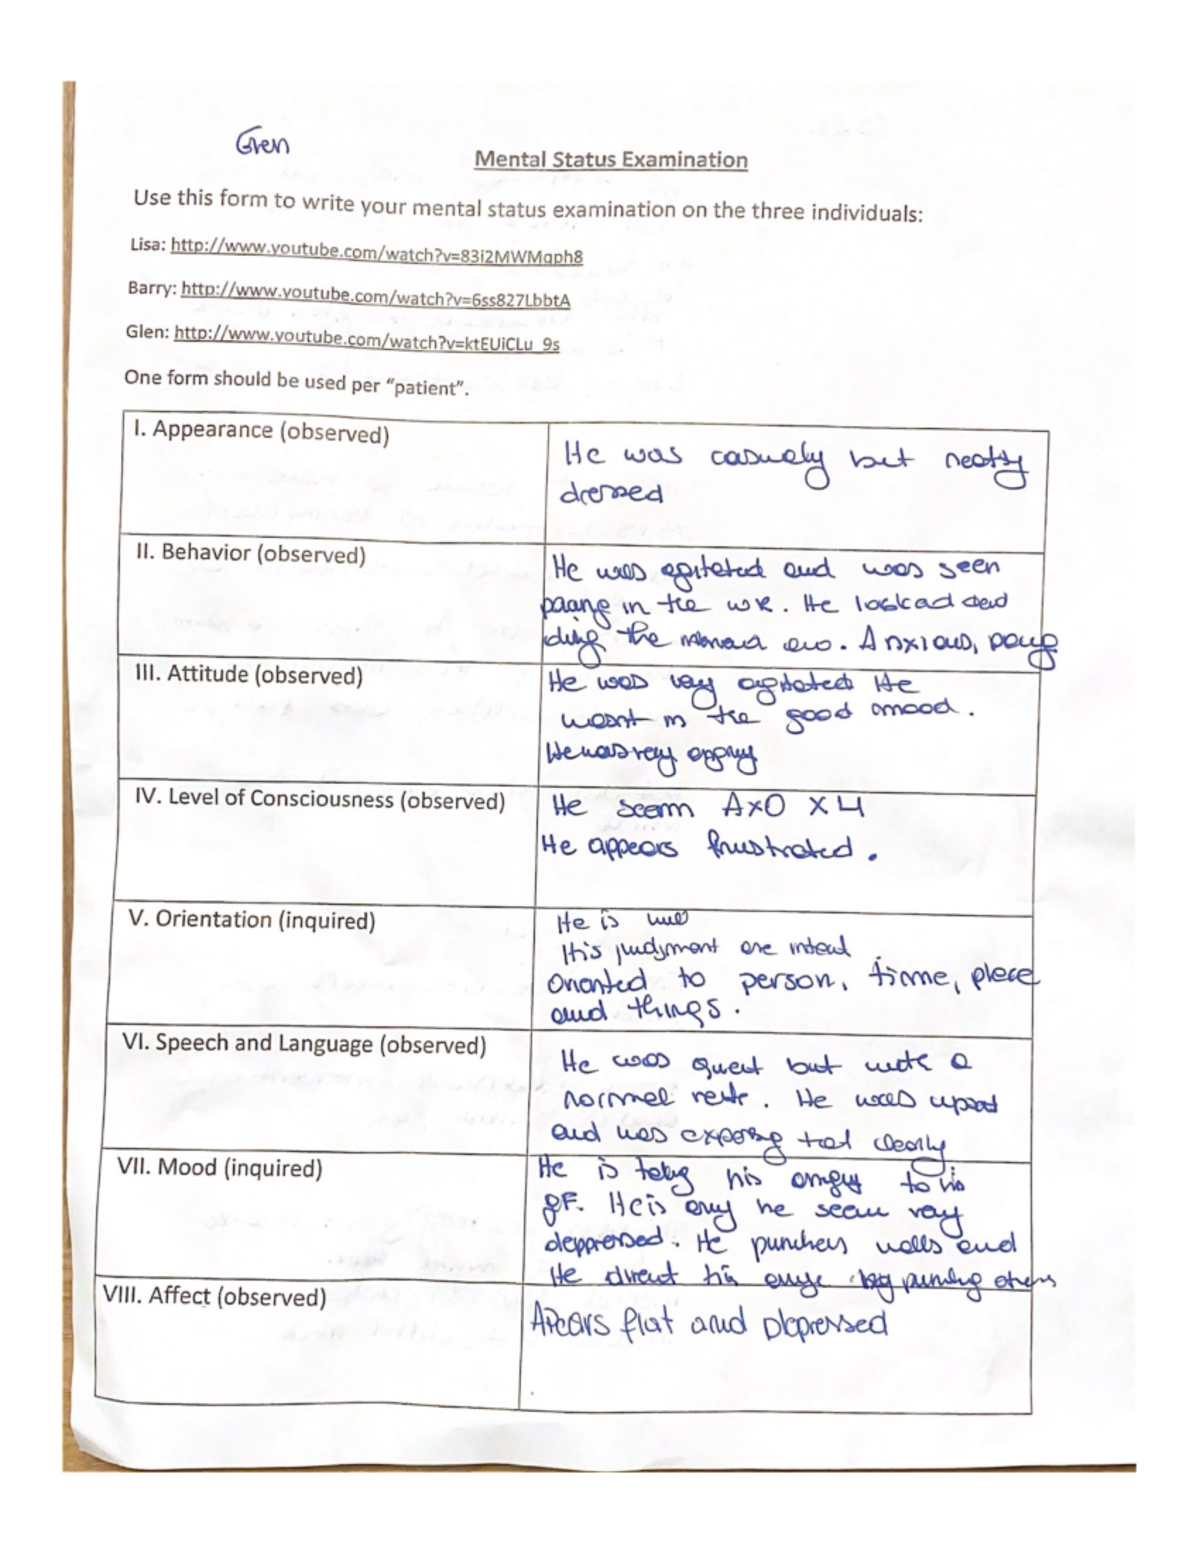 Glen
Mental Status Examination
Use this form to write your mental status examination on the three individuals:
Lisa: http://www.youtube.com/watch?v=83i2MWMqph8
Barry: http://www.youtube.com/watch?v=6ss827LbbtA
Glen: http://www.youtube.com/watch?v=ktEUiCLu_9s
One form should be used per “patient”.
I. Appearance (observed)
He was casualy but neatly
dressed
II. Behavior (observed)
He was agitated and was seen
in the WR. He looked
the. Anxious,
III. Attitude (observed)
He was very agitated He
wasnt in the good mood.
He was very angry
IV. Level of Consciousness (observed)
He seem AxO X4
He appears frustrated.
V. Orientation (inquired)
He is
His judgment are intact
Oriented to person, time, place
and things.
VI. Speech and Language (observed)
He was quiet but with a
normal rate. He was upset
and was clearly
VII. Mood (inquired)
He is his angry to his
GF. He is angry he seem very
deppressed. He punches walls and
He direct his by punching others
VIII. Affect (observed)
Apears flat and Depressed